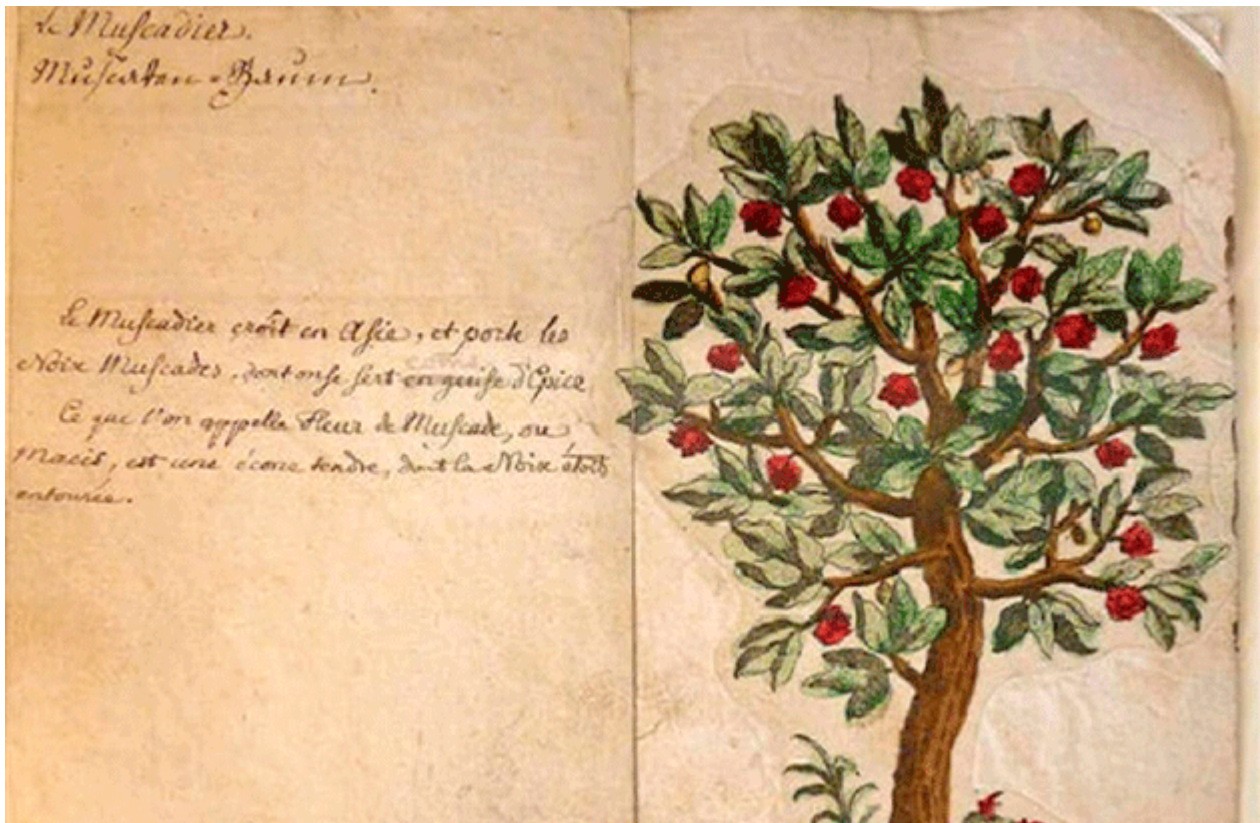 Le Muscadier.
Muscaten-Baum.
Le Muscadier croît en Asie, et porte les
Noix Muscades, dont on se sert en guise d'Epice
Ce que l'on appelle Fleur de Muscade, ou
Macis, est une écorce tendre, dont la Noix étoit
entourée.